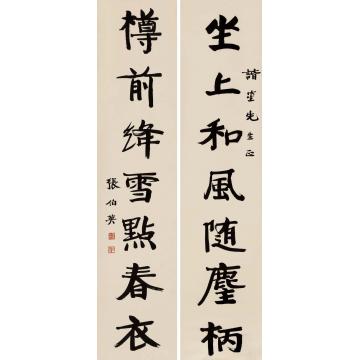 坐上和風随麈柄
諧笙先生正
樽前絳雪點春衣
張伯英